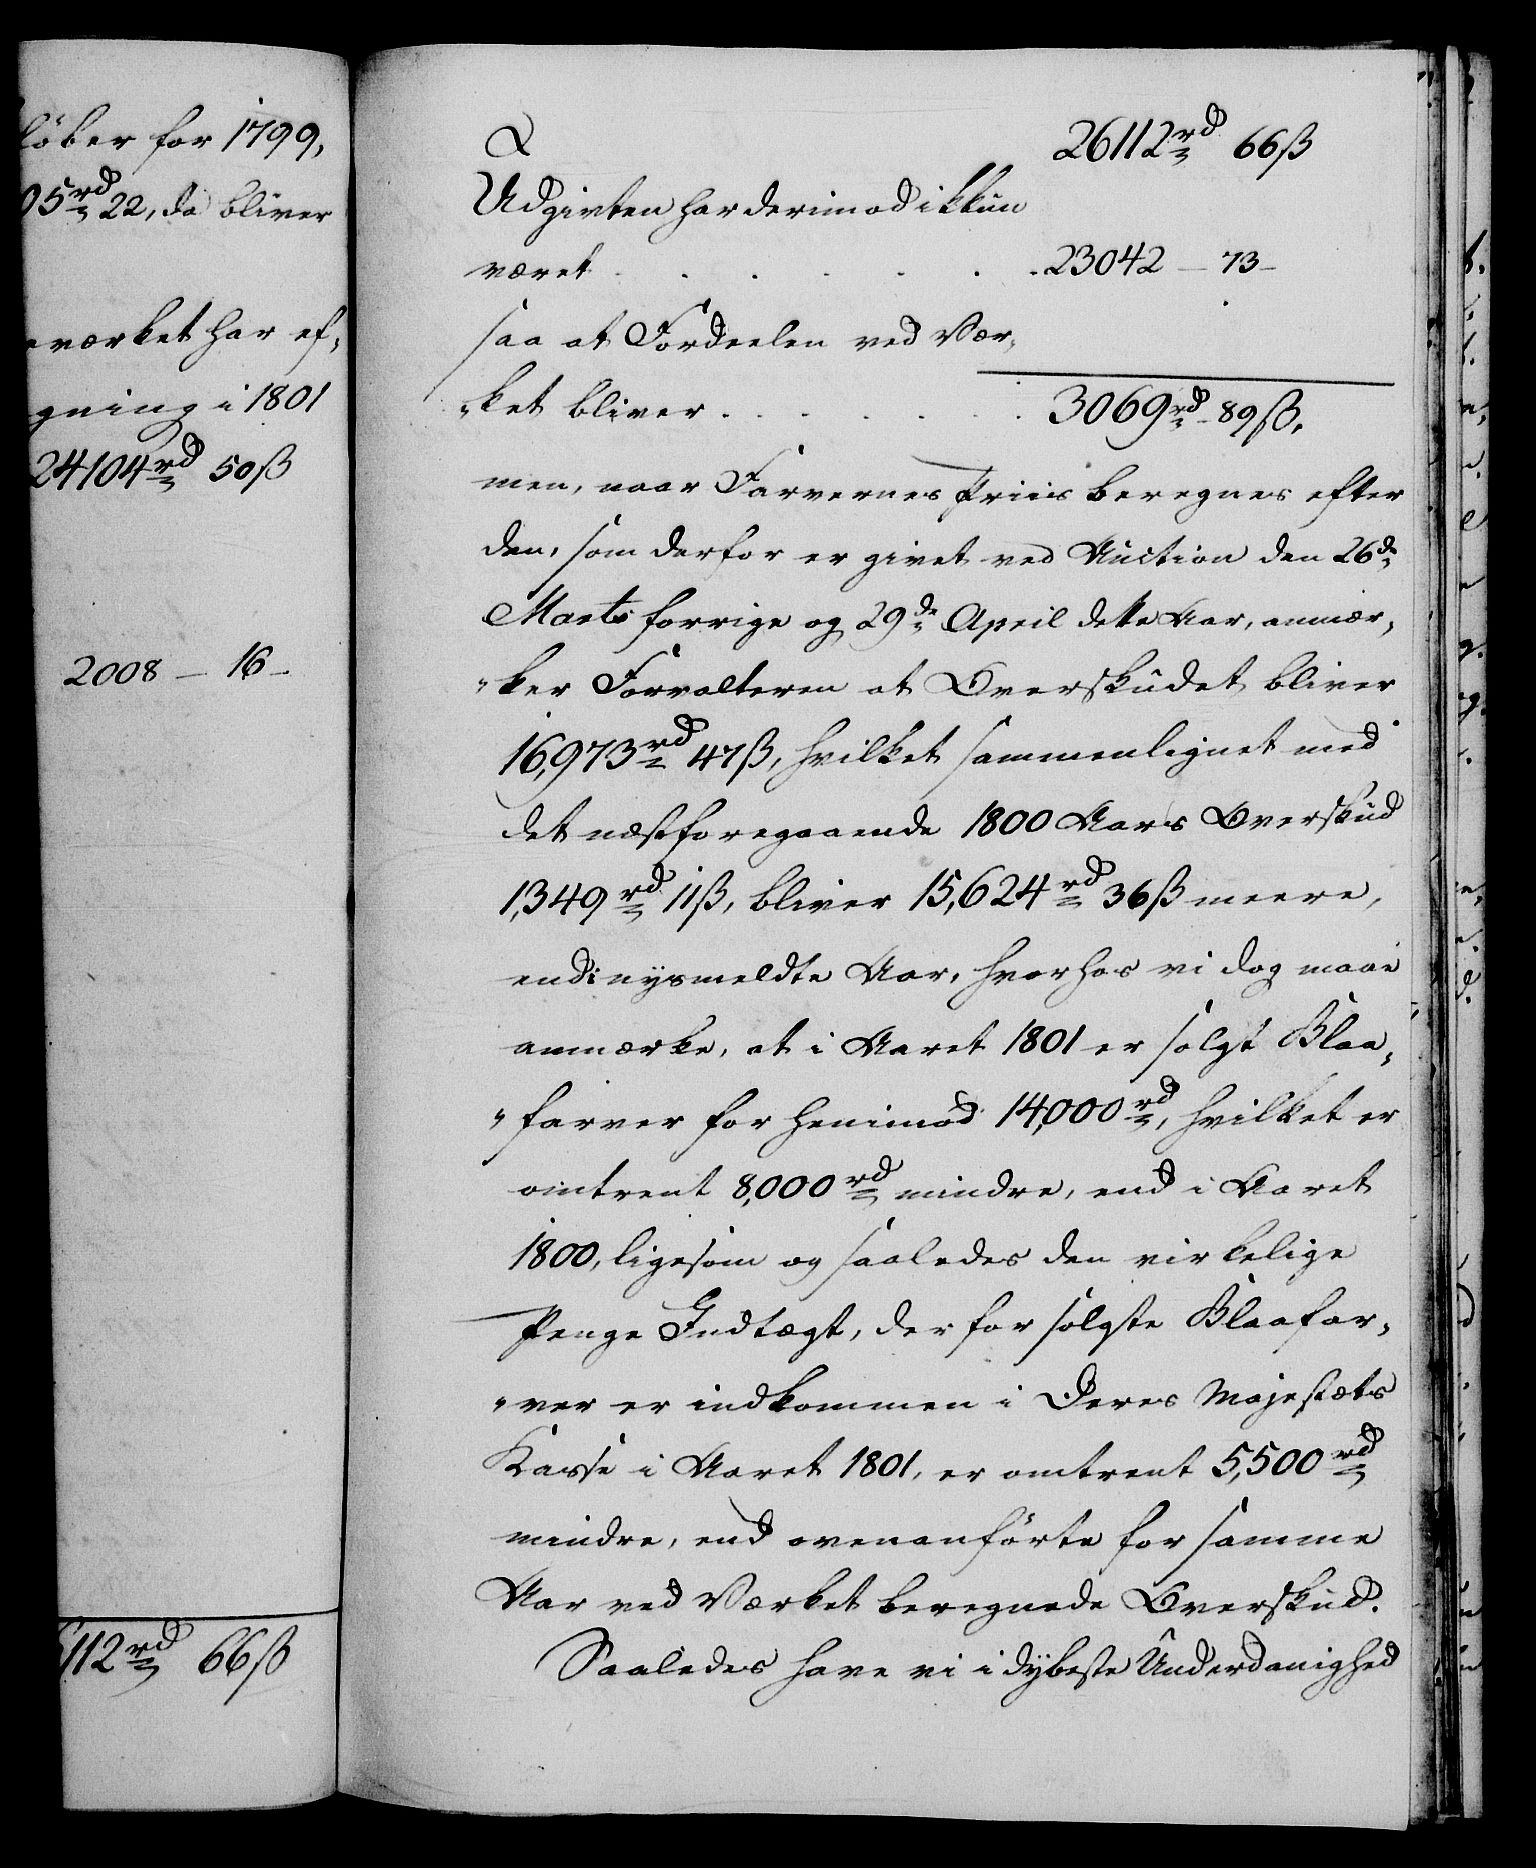 löber for 1799,
05rd 22, da bliver
værket har ef-
gning i 1801
24104rd 50ß
2008 — 16 —
6112rd 66ß
26112rd 66ß
Udgivten har derimod ikkun
været . . . . . . 23042 — 73 —
saa at Fordeelen ved Vær-
ket bliver . . . . . . 3069rd 89ß.
men, naar Farvernes Priis beregnes efter
den, som derfor er givet ved Auction den 26de
Marts forrige og 29de April dette Aar, anmær-
ker Forvalteren at Overskudet bliver
16,973rd 47ß, hvilket sammenlignet med
det næstforegaaende 1800 Aars Overskud
1,349rd 11ß, bliver 15,624rd 36ß meere,
end i nysmeldte Aar, hvorhos vi dog maae
anmærke, at i Aaret 1801 er solgt Blaa-
farver for henimod 14,000rd, hvilket er
omtrent 8,000rd mindre, end i Aaret
1800, ligesom og saaledes den virkelige
Penge Indtægt, der for solgte Blaafar-
ver er indkommen i Deres Majestæts
Kasse i Aaret 1801, er omtrent 5,500rd
mindre, end ovenanförte for samme
Aar ved Værket beregnede Overskud.
Saaledes have vi i dybeste Underdanighed